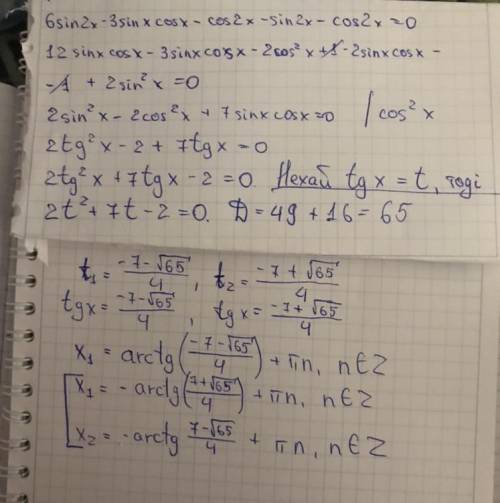 6sin2x-3sinxcosx-cos2x-sin2x-cos2x=0
12 sinx cosx - 3sinxcosx - 2cos²x +1 - 2sinxcosx -
-1 + 2sin²x = 0
2sin²x - 2cos²x + 7sinxcosx=0 | cos²x
2tg²x - 2 + 7tgx = 0
2tg²x + 7tgx - 2 = 0. Нехай tgx = t, тоді
2t² + 7t - 2 = 0. D = 49 + 16 = 65
t₁ = (-7-√65)/4, t₂ = (-7+√65)/4
tgx = (-7-√65)/4, tgx = (-7+√65)/4
x₁ = arctg((-7-√65)/4) + πn, n∈Z
[x₁ = -arctg((7+√65)/4) + πn, n∈Z
x₂ = -arctg (7-√65)/4 + πn, n∈Z